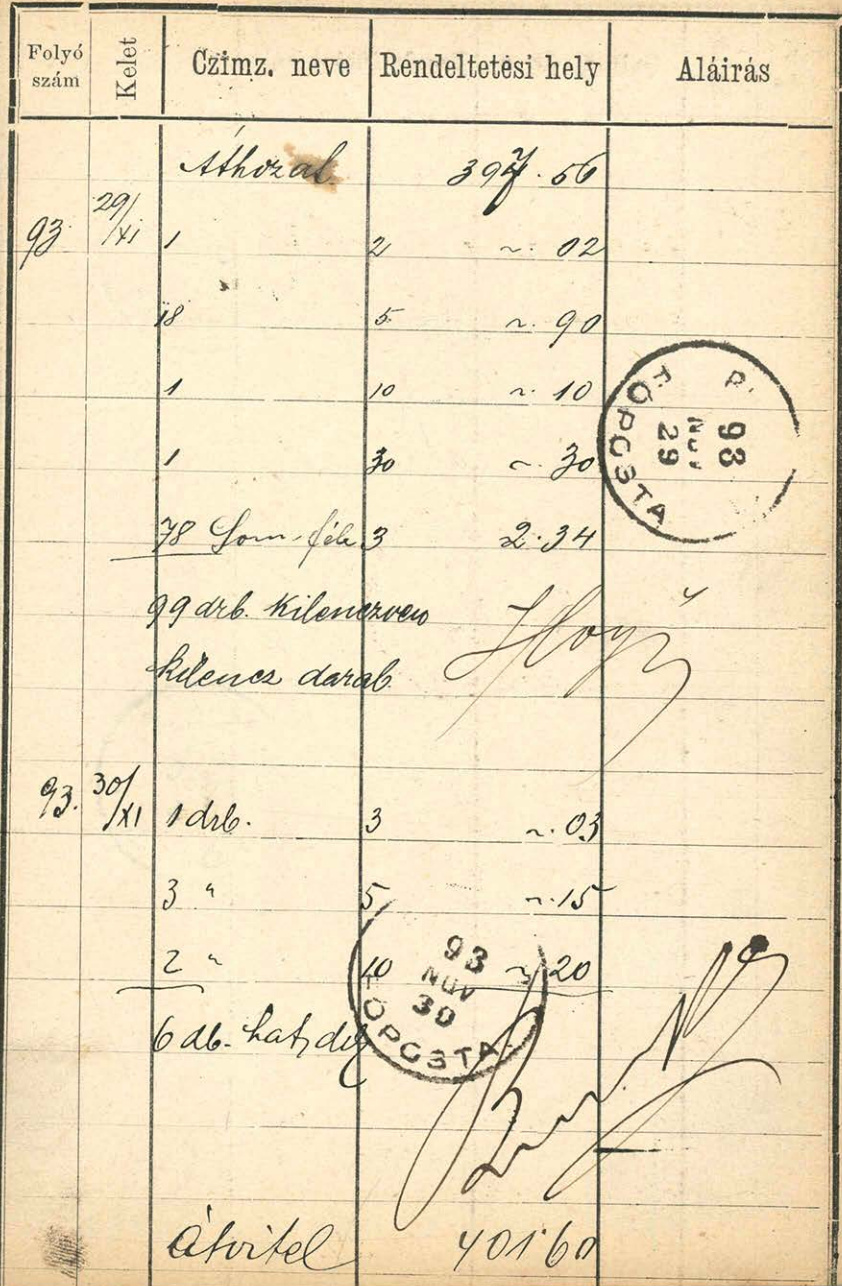 Folyó szám Kelet Czimz. neve Rendeltetési hely Aláirás
Áthozat 397.56
93. 29/XI 1 2 ~. 02
18 5 ~. 90
1 10 ~. 10
1 30 ~. 30
P. 93 NOV 29 FŐPOSTA
78 3 2.34
99 drb. kilenczven
kilencz darab.
93. 30/XI 1 drb. 3 ~. 03
3 " 5 ~. 15
2 " 10 ~. 20
93 NOV 30 FŐPOSTA
6 db. hat
Átvitel 401.60